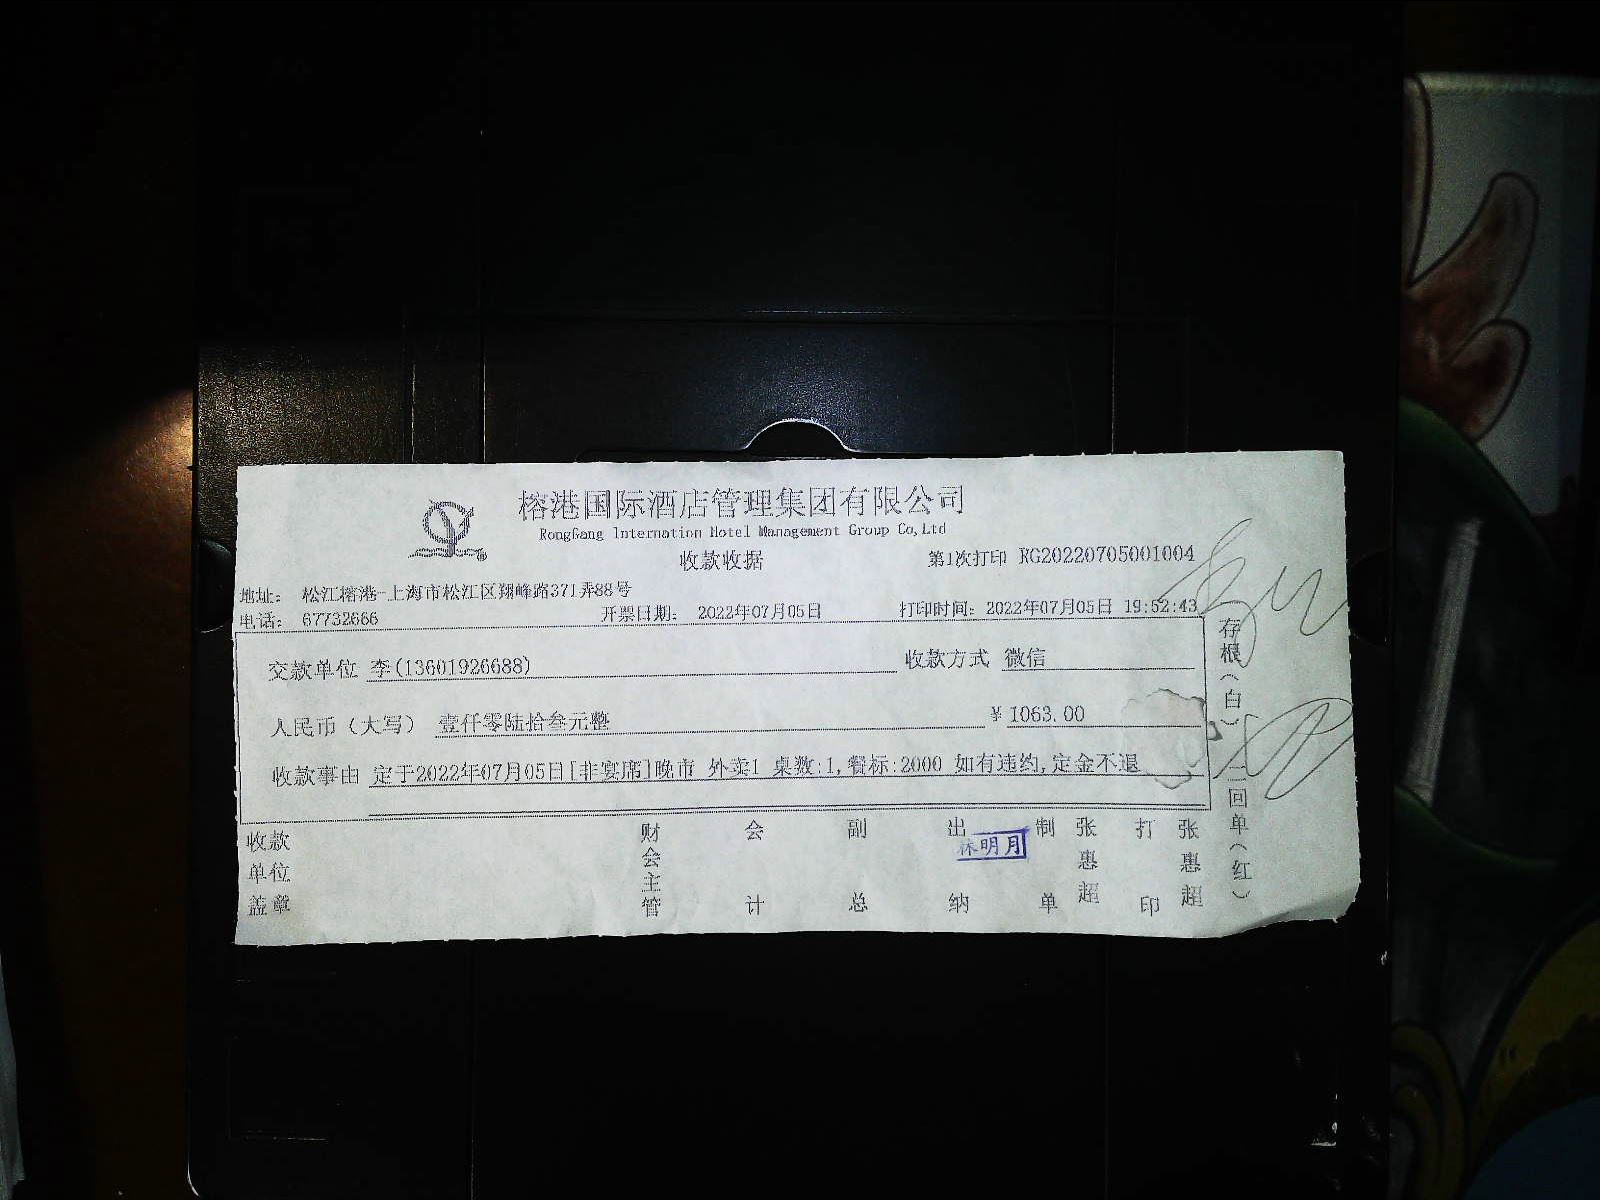 榕港国际酒店管理集团有限公司
RongGang Internation Hotel Management Group Co,Ltd
收款收据
第1次打印 RG20220705001004
地址: 松江榕港-上海市松江区翔峰路371弄88号
电话: 67732666
开票日期: 2022年07月05日
打印时间: 2022年07月05日 19:52:43
交款单位 李(13601926688)
收款方式 微信
人民币（大写） 壹仟零陆拾叁元整
¥ 1063.00
收款事由 定于2022年07月05日[非宴席]晚市 外卖1 桌数:1,餐标:2000 如有违约,定金不退
收款单位盖章
财会主管
会计
副总
出纳
林明月
制单
张惠超
打印
张惠超
存根（白） 二回单（红）